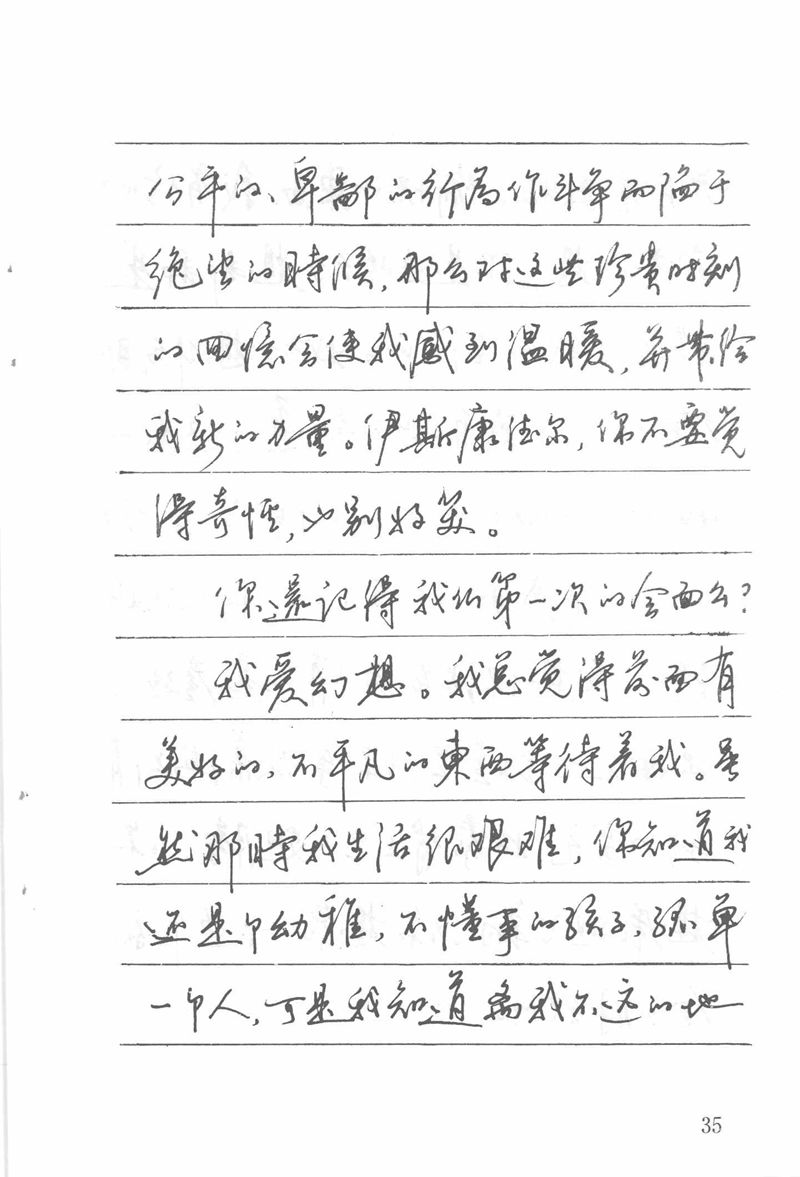 公平的、卑鄙的行为作斗争而陷于
绝望的時候，那么对这些珍贵时刻
的回憶会使我感到温暖，并带给
我新的力量。伊斯康德尔，你不要觉
得奇怪，也别好笑。
你還记得我们第一次的会面么？
我爱幻想。我总觉得前面有
美好的、不平凡的東西等待着我。虽
然那時我生活很艰难，你知道我
还是个幼稚，不懂事的孩子，孤单
一个人，可是我知道离我不远的地
35